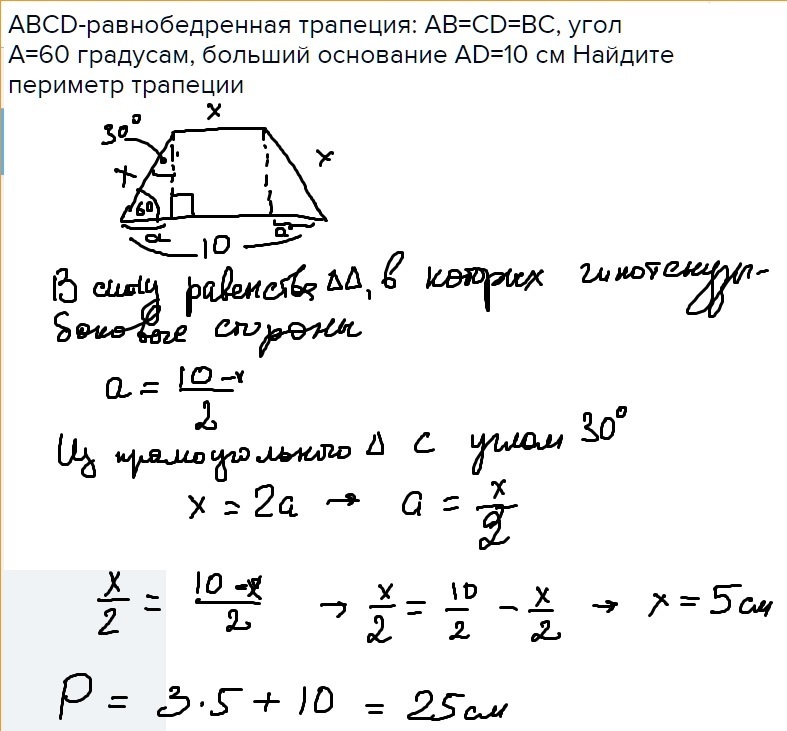 ABCD-равнобедренная трапеция: AB=CD=BC, угол
A=60 градусам, больший основание AD=10 см Найдите
периметр трапеции
x
30°
x
x
60
a
a
10
В силу равенства ΔΔ, в которых гипотенузы-
боковые стороны
a = (10-x)/2
Из прямоугольного Δ с углом 30°
x = 2a → a = x/2
x/2 = (10-x)/2 → x/2 = 10/2 - x/2 → x = 5 см
P = 3·5 + 10 = 25 см